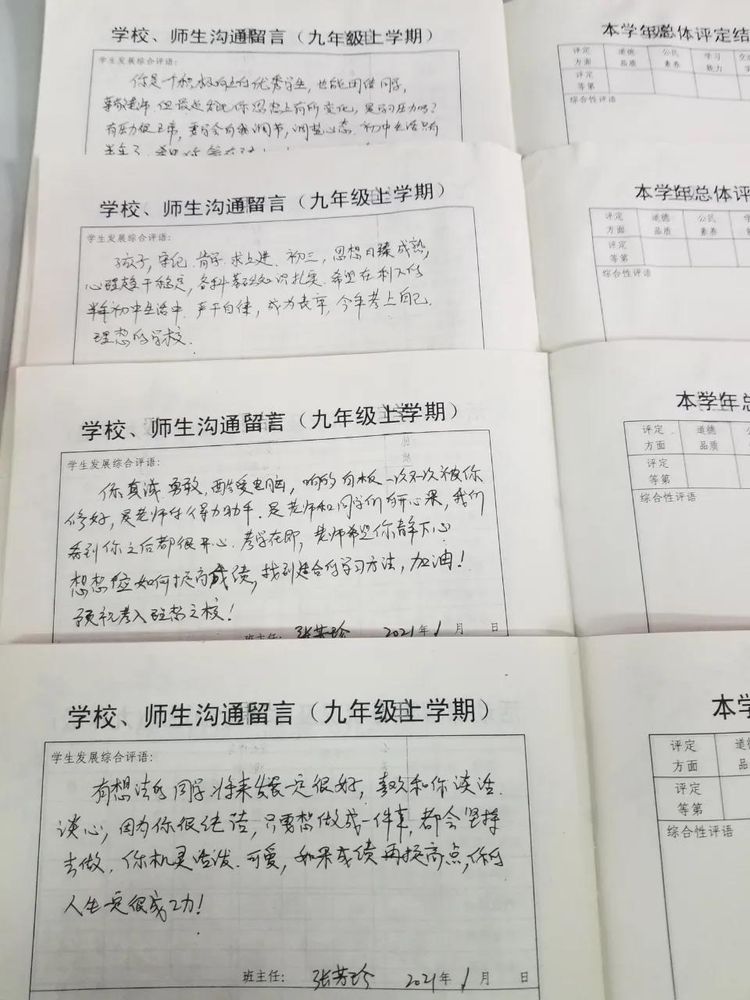 学校、师生沟通留言（九年级上学期）
学生发展综合评语:
你是个积极向上的优秀学生，也能团结同学，
思想上有所变化，是学习压力吗？
有压力很正常，要学会自我调节，调整心态，初中生活只有
半年了
本学年总体评定结
评定 道德 公民 学习
方面 品质 素养 能力
评定
等第
综合性评语:
学校、师生沟通留言（九年级上学期）
学生发展综合评语:
孩子，牢记，肯学，求上进，初三，思想日臻成熟，
心理趋于稳定，各科基础知识扎实，希望在剩下的
半年初中生活中，严于自律，成为表率，今年考上自己
理想的学校.
本学年总体评
评定 道德 公民 学
方面 品质 素养
评定
等第
综合性评语:
学校、师生沟通留言（九年级上学期）
学生发展综合评语:
你真诚，勇敢，酷爱电脑，班的白板一次又一次被你
修好，是老师得力助手，是老师和同学们的开心果，我们
看到你之后都很开心，考学在即，老师希望你静下心
想想应如何提高成绩，找到适合的学习方法，加油！
预祝考入理想之校！
班主任: 张芳玲 2021年1月 日
本学年总
评定 道德 公
方面 品质
评定
等第
综合性评语:
学校、师生沟通留言（九年级上学期）
学生发展综合评语:
有想法的同学将来发展一定很好，喜欢和你谈话.
谈心，因为你很纯洁，只要想做成一件事，都会坚持
去做，你机灵活泼.可爱，如果成绩再提高点，你的
人生一定很成功！
班主任: 张芳玲 2021年1月 日
本学
评定 道
方面 品
评定
等第
综合性评语